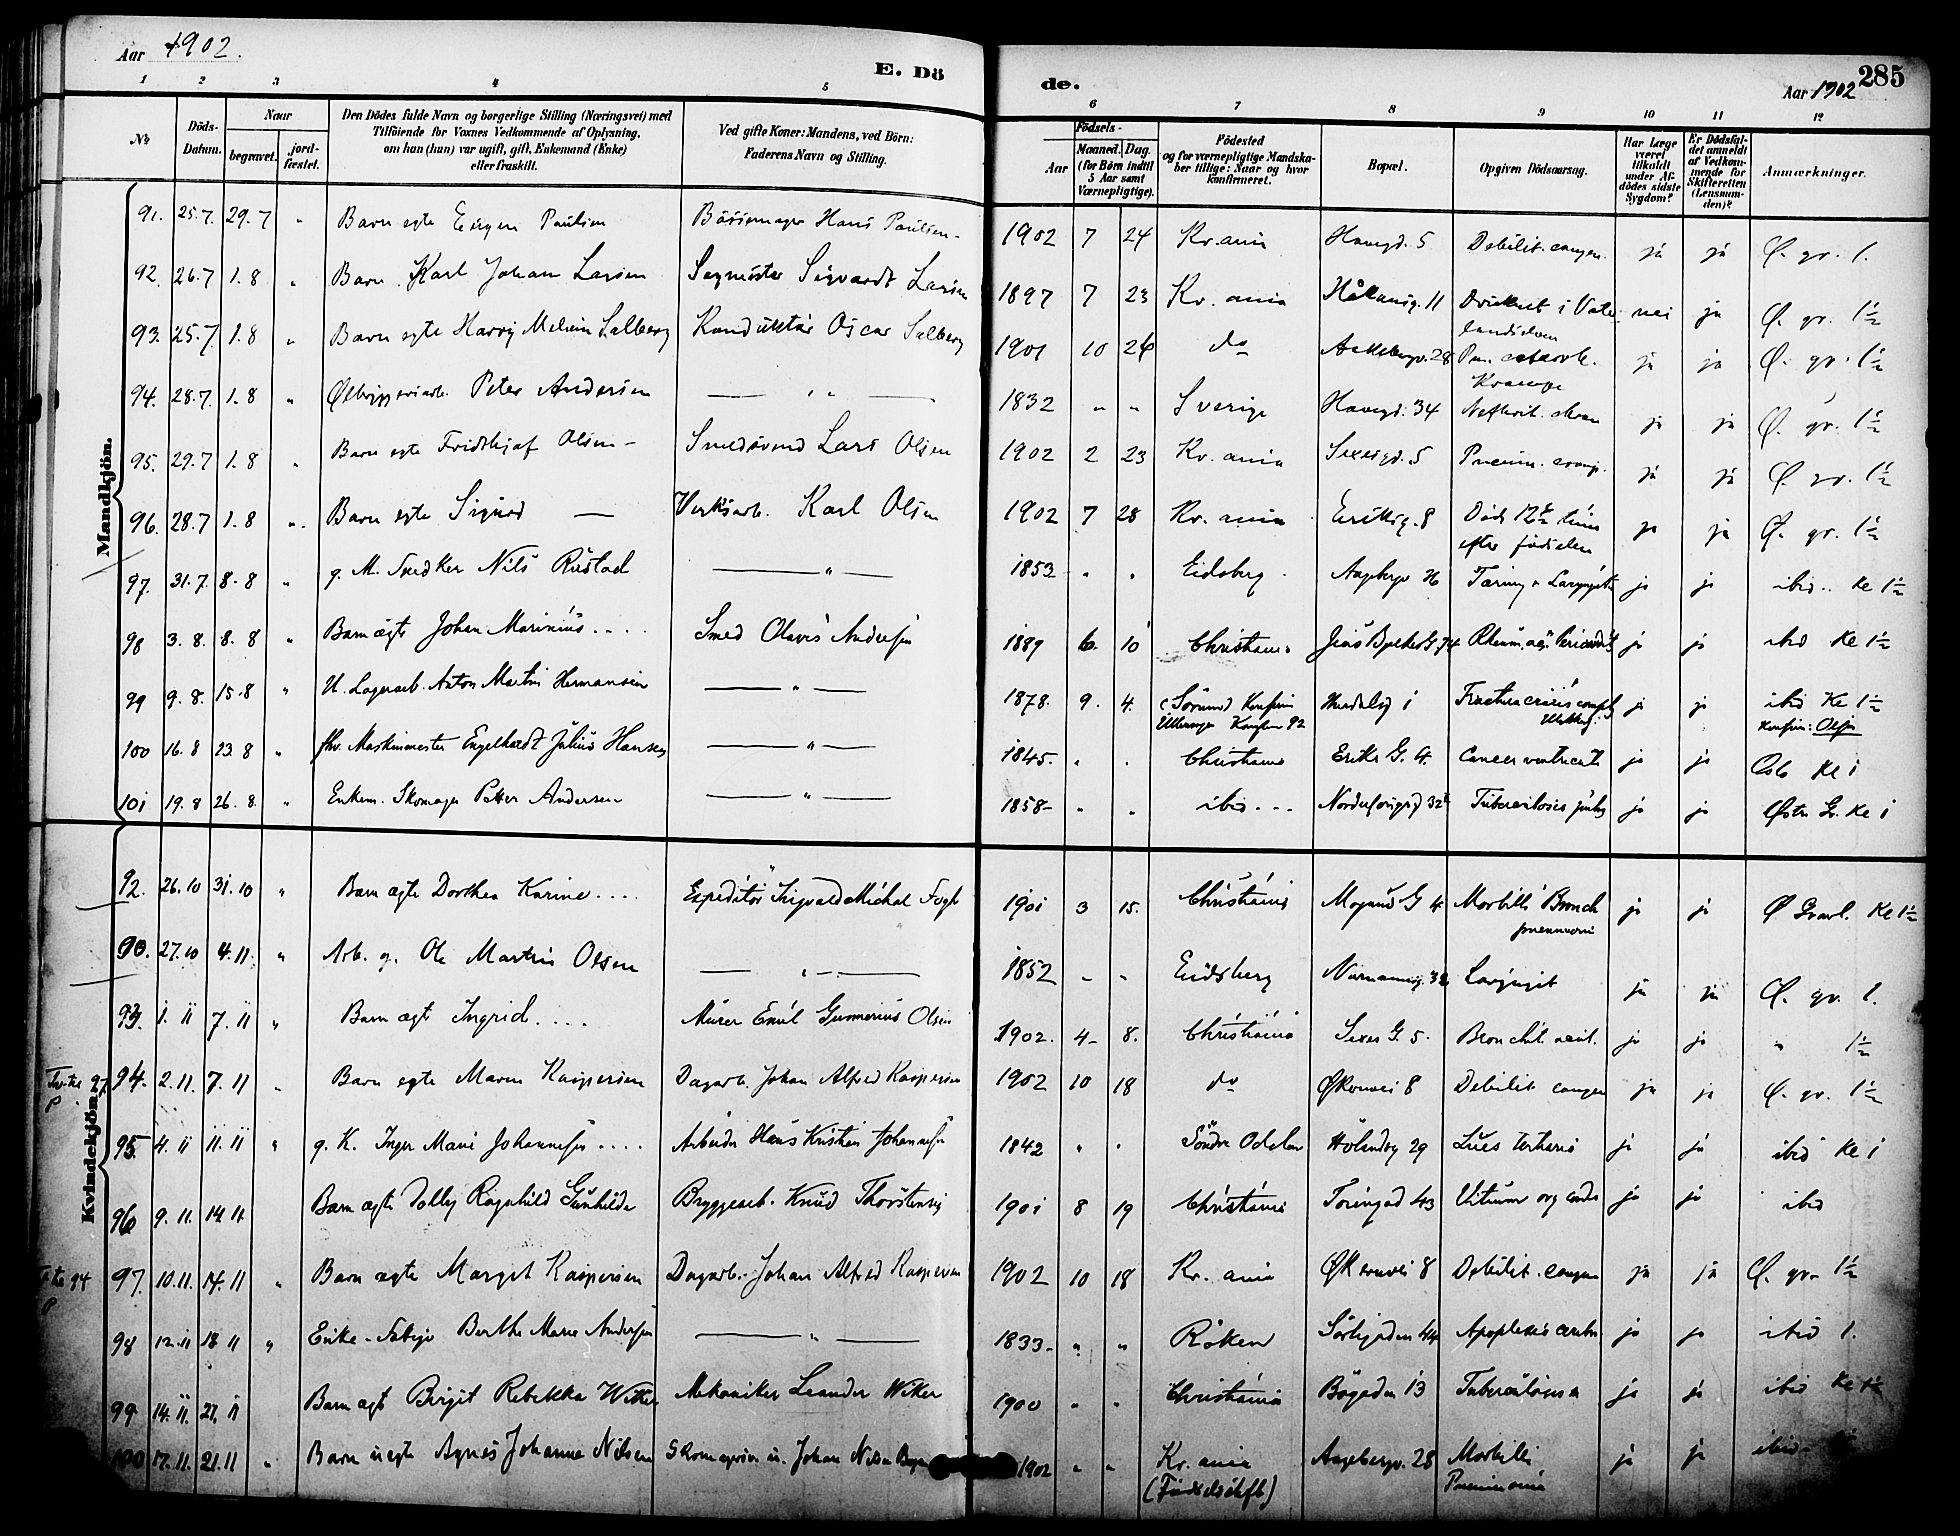 Aar 1902.
E. Dö
de.
Aar 1902
285
1 2 3 4 5 6 7 8 9 10 11 12
No
Döds-Datum.
Naar
begravet.
jord-fæstet.
Den Dödes fulde Navn og borgerlige Stilling (Næringsvei) med
Tilföiende for Voxnes Vedkommende af Oplysning,
om han (hun) var ugift, gift, Enkemand (Enke)
eller fraskilt.
Ved gifte Koner: Mandens, ved Börn:
Faderens Navn og Stilling.
Födsels-
Aar
Maaned. Dag.
(for Börn indtil
5 Aar samt
Værnepligtige).
Födested
og for værnepligtige Mandska-
ber tillige: Naar og hvor
konfirmeret.
Bopæl.
Opgiven Dödsaarsag.
Har Læge
været
tilkaldt
under Af-
dödes sidste
Sygdom?
Er Dödsfal-
det anmeldt
af Vedkom-
mende for
Skifteretten
(Lensman-
den)?
Anmærkninger.
Mandkjön.
91. 25.7. 29.7 " Barn egte Eirgen Paulsen Hans Paulsen - 1902 7 24 Kr.ania Havegd. 5 Debilit. congen. ja ja Ø. gr. 1.
92. 26.7 1.8 " Barn Karl Johan Larsen Sagmester Sigvardt Larsen 1897 7 23 Kr. ania Håkonsg. 11 Druknet i Vaterlandselven nei ja Ø. gr. 1½
93. 25.7. 1.8 " Barn egte Harry Melvin Salberg Konduktør Oscar Salberg 1901 10 26 do Aakebergv. 28 Pn. catarrh. Krampe ja ja Ø. gr. 1½
94. 28.7. 1.8 " Ølbryggeriarb. Peter Andersen — " — 1832 " " Sverige Havegd. 34 Nefhrit. chron ja ja Ø. gr. 1½
95. 29.7 1.8 " Barn egte Fridthjof Olsen - Smedsvend Lars Olsen 1902 2 23 Kr. ania Sexesgd. 5 Pneum. croup. ja ja Ø. gr. 1½
96. 28.7 1.8 " Barn egte Sigurd — Verksarb. Karl Olsen 1902 7 28 Kr. ania Eriksg. 8 Død 12½ time efter fødselen ja ja Ø. gr. 1½
97. 31.7. 8.8 " g. M. Snedker Nils Rustad — " — 1853 " " Eidsberg Aageberge 26 Tæring + Laryngitis ja ja ibid.. Ke 1½
98 3.8. 8.8 " Barn ægte Johan Marinius.... Smed Olavis Andersen 1889 6. 10 Christiania Jens Bjelkes G. 74 Rheum. ac. Pericardit ja ja ibid Ke 1½
99 9.8. 15.8 " U. Lagerarb. Anton Martin Hermansen — " — 1878. 9. 4. Ullensager Konfirm 92 ja ja ibid Ke 1½ Konfirm: Olsen
100 16.8 23.8 " fhv. Maskinmester Engelhardt Julius Hansen — " — 1845. " " Christiania Eriks G. 4. Cancer ventricul ja ja Oslo Ke 1
101 19.8 26.8. " Enkem. Skomager Petter Andersen — " — 1858- " " ibid... Tuberculosis pulm ja ja Østre Gr. Ke 1
Kvindekjön.
92. 26.10 31.10 " Barn ægte Dorthea Karine.... Expeditør Sigvald Michal Fogh 1901 3 15. Christiania Mogens G 4 Morbilli Bronch pneumoni ja ja Ø Gravl. Ke 1½
90. 27.10 4.11 " Arb. g. Ole Martin Olsen — " — 1852 - " Eidsberg Normannsg. Laryngit ja ja Ø. gr. 1.
93. 1.11 7.11 " Barn ægt Ingrid.... Murer Emil Gunnerius Olsen 1902. 4- 8. Christiania Sexes G. 5. Bronchit acut. ja ja " 1½
94. 2.11. 7.11 " Barn egte Maren Kaspersen Dagarb. Johan Alfred Kaspersen 1902 10 18 do Økernvei 8 Debilit congen ja ja Ø. gr. 1½
95. 4.11 11.11 " g. K. Inger Marie Johannesen.... Arbeider Hans Kristian Johannesen 1842 " " Søndre Odalen Hølandsg 29 Lues tertiaria ja ja ibid Ke 1
96 9.11. 14.11. Barn ægte Dolly Ragnhild Gunhilda Bryggearb. Knud Thorstensen 1901 8 19 Christiania Toiengad 43 Vitium org cordis ja ja ibid
97. 10.11. 14.11 " Barn ægte Margit Kaspersen Dagarb. Johan Alfred Kaspersen 1902 10 18 Kr. ania Økernvei 8 Debilit. congen ja ja Ø. gr. 1½
98 12.11 18.11 " Enke - Berthe Marie Andersen — " — 1833- " " Røken Sörligaden 44 Apoplexis cerebri ja ja ibid 1.
99 14.11. 21.11 Barn ægt Birgit Rebekka Wiker Mekaniker Leander Wiker 1900 " " Christiania Bøgaden 13 Tuberculosis ja ja ibid Ke 1½
100 17.11. 21.11 " Barn uegte Agnes Johanne Nilsen Johan Nilsen 1902 " " Kr. ania (Fødselsstift.) Aagebergv. 28 Morbilli Pneumonia ja ja ibid